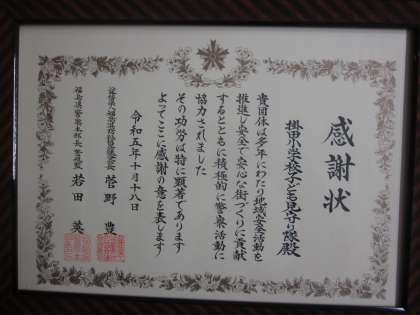 感謝状
掛田小学校子ども見守り隊殿
貴団体は多年にわたり地域安全活動を
推進し安全で安心な街づくりに貢献
するとともに積極的に警察活動に
協力されました
その功労は特に顕著であります
よってここに感謝の意を表します
令和五年十月十八日
菅野 豊
福島県警察本部長警視長 若田 英